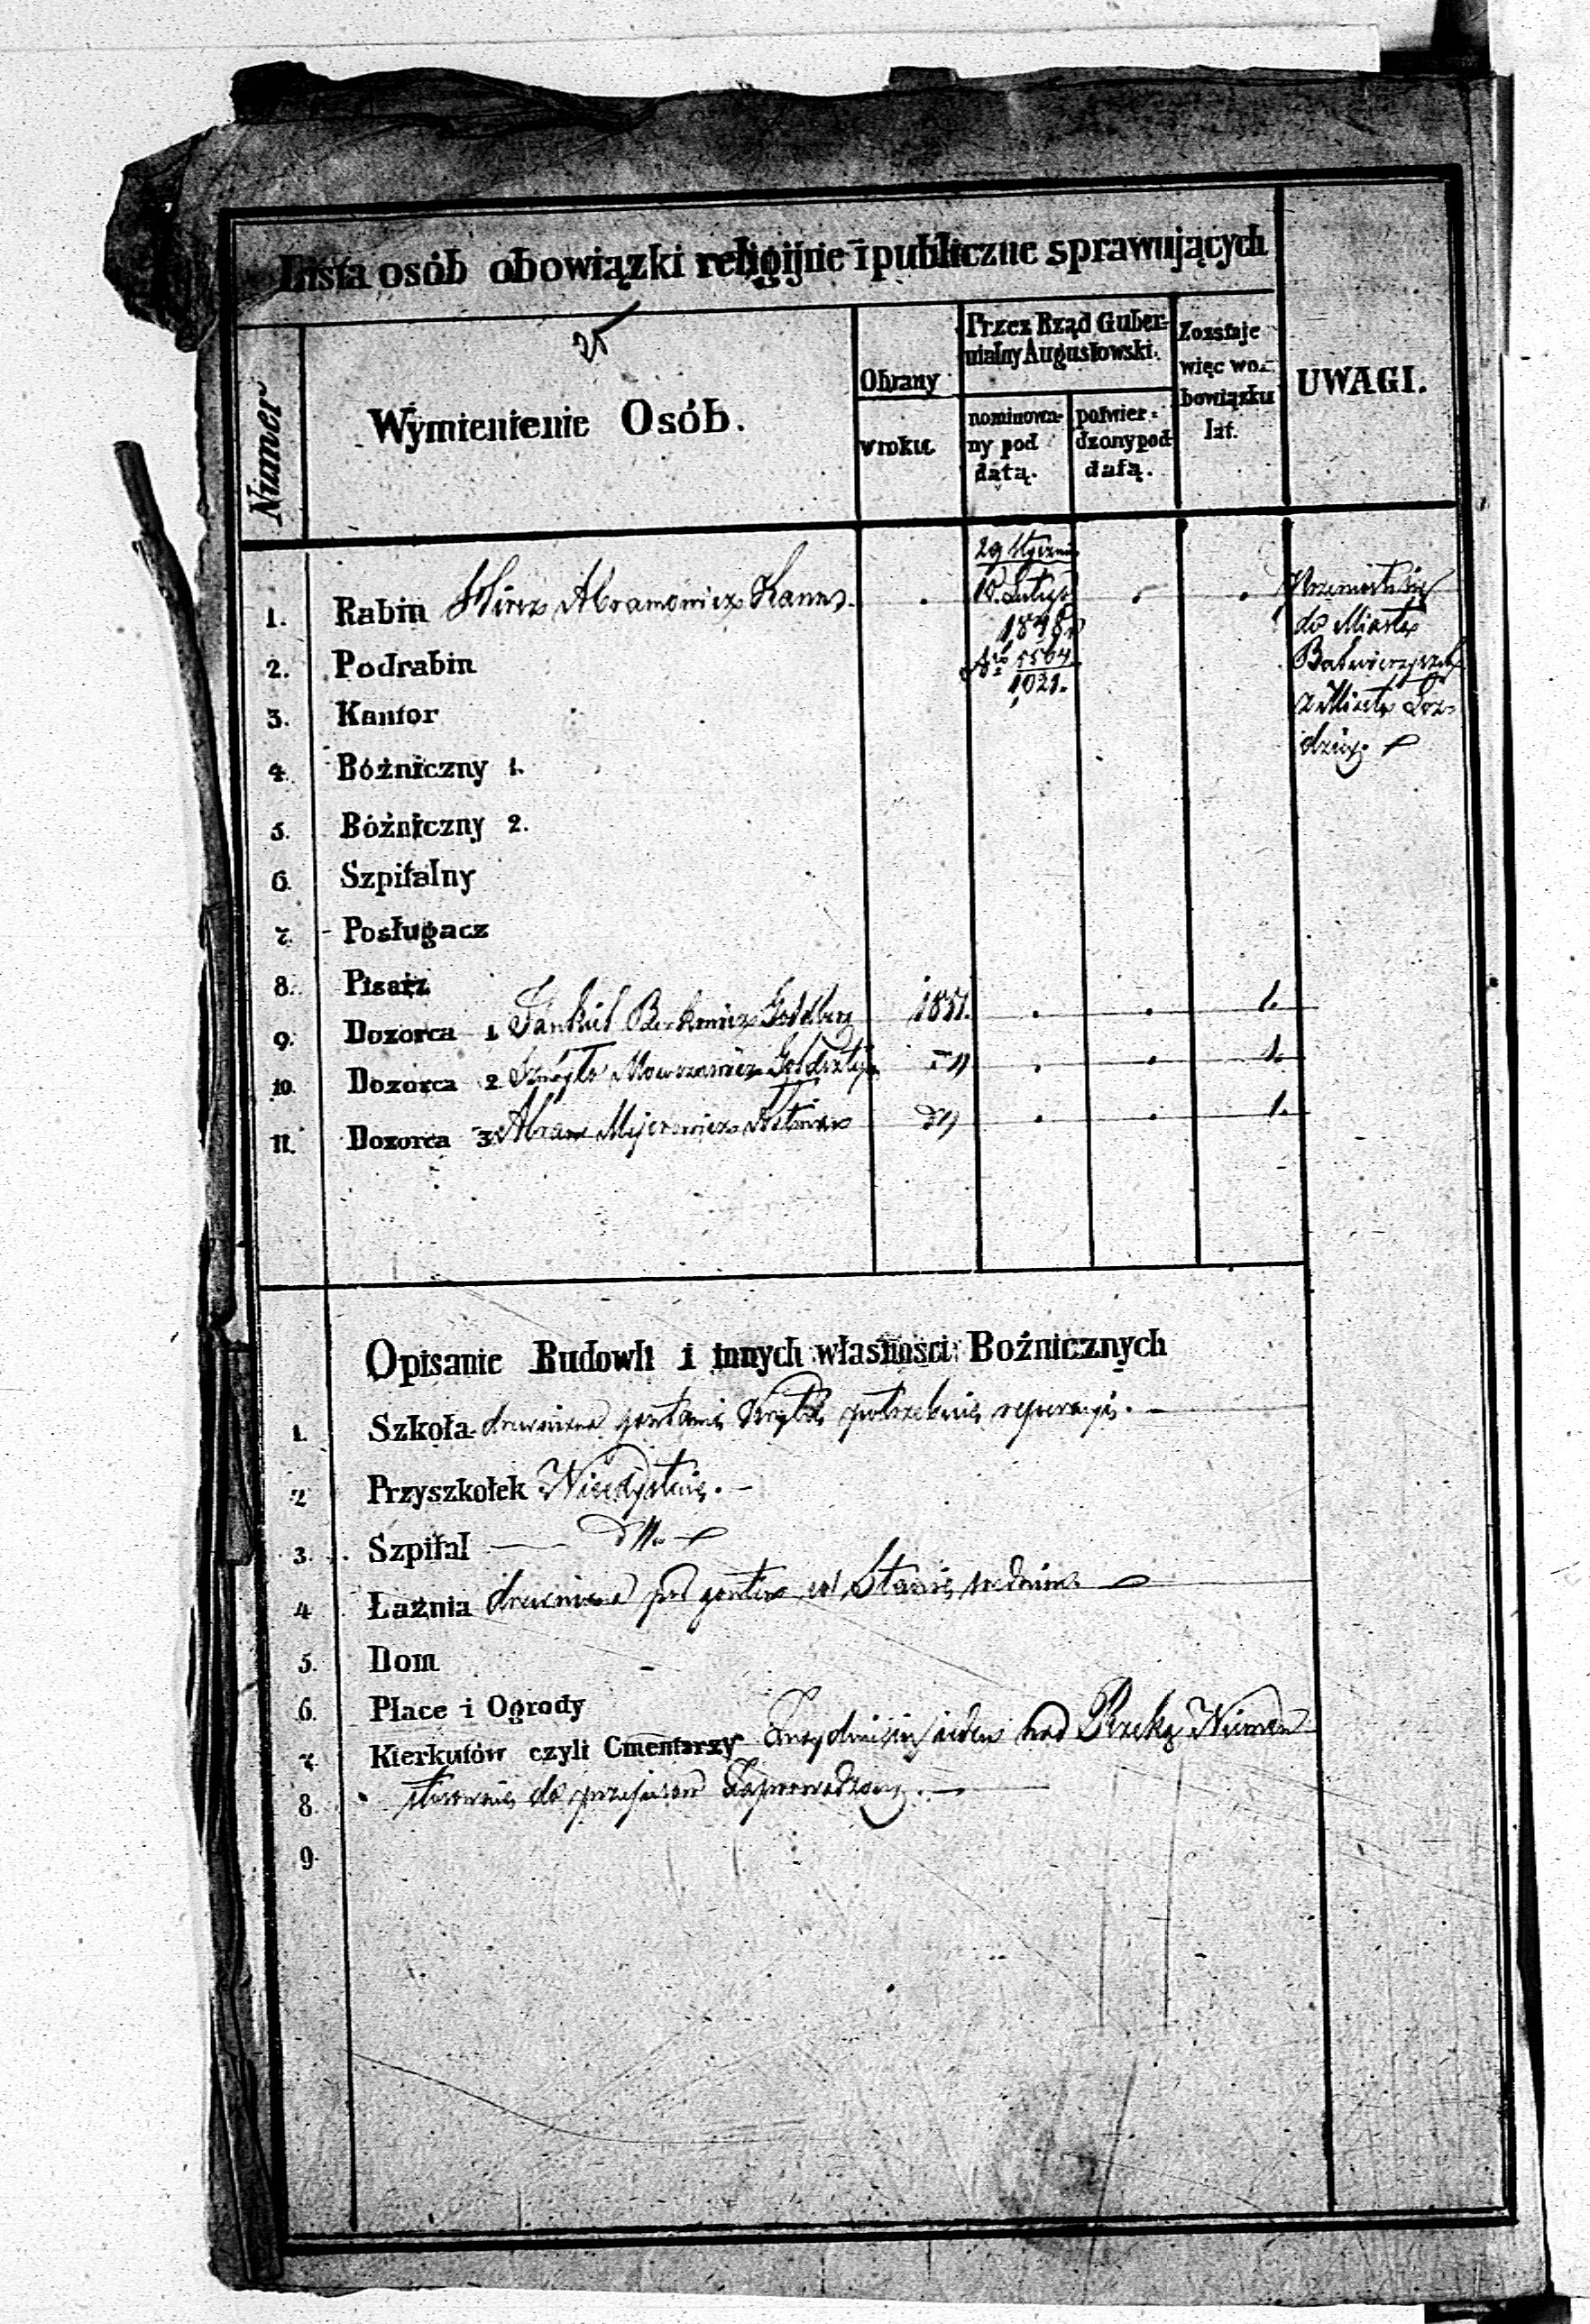 Lista osób obowiązki religijne i publiczne sprawujących
25
Numer
Wymienienie Osób.
Obrany
w roku.
Przez Rząd Guber-
nialny Augustowski.
nominowa-
ny pod
datą.
potwier-
dzony pod
datą.
Zostaje
więc w o-
bowiązku
lat.
UWAGI.
29 Stycznia
1. Rabin Hirsz Abramowicz . 10 Lutego . .
1848 r
do Miasta
2. Podrabin No 5564
1021.
3. Kantor z Miasta Łoz-
dziej.
4. Bóżniczny 1.
5. Bóżniczny 2.
6. Szpitalny
7. Posługacz
8. Pisarz
9. Dozorca 1 Jankiel Berkowicz Goldberg 1851. . . 1.
10. Dozorca 2 Mowszowicz Goldsztejn dtt . . 1.
11. Dozorca 3 Abram Mejerowicz dtt . . 1.
Opisanie Budowli i innych własności Bożnicznych
1. Szkoła drewniana gontami kryta potrzebuje reperacyi. —
2 Przyszkołek Nieegzystuje. —
3. Szpital — dtt. —
4 Łaźnia drewniana pod gontem w Stanie średnim —
5. Dom -
6. Place i Ogrody
7. Kierkutów czyli Cmentarzy Znajduje się jeden nad Rzeką Niemen
8. stosownie do przepisów Zaprowadzony. —
9.